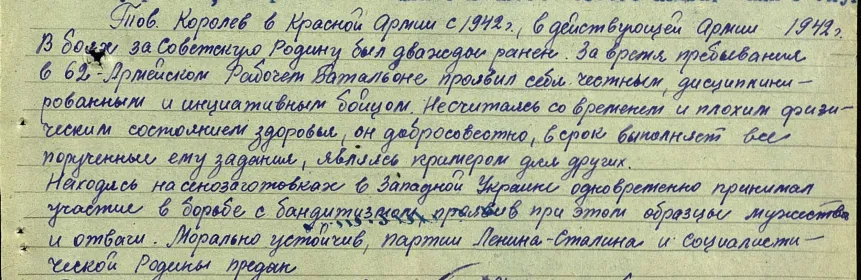 Тов. Королев в Красной Армии с 1942 г., в действующей Армии 1942 г.
В боях за Советскую Родину был дважды ранен. За время пребывания
в 62-Армейском Рабочем Батальоне проявил себя честным, дисциплини-
рованным и инициативным бойцом. Несчитаясь со временем и плохим физи-
ческим состоянием здоровья, он добросовестно, в срок выполняет все
порученные ему задания, являясь примером для других.
Находясь на сенозаготовках в Западной Украине одновременно принимал
участие в борьбе с бандитизмом проявив при этом образцы мужества
и отваги. Морально устойчив, партии Ленина-Сталина и социалисти-
ческой Родины предан